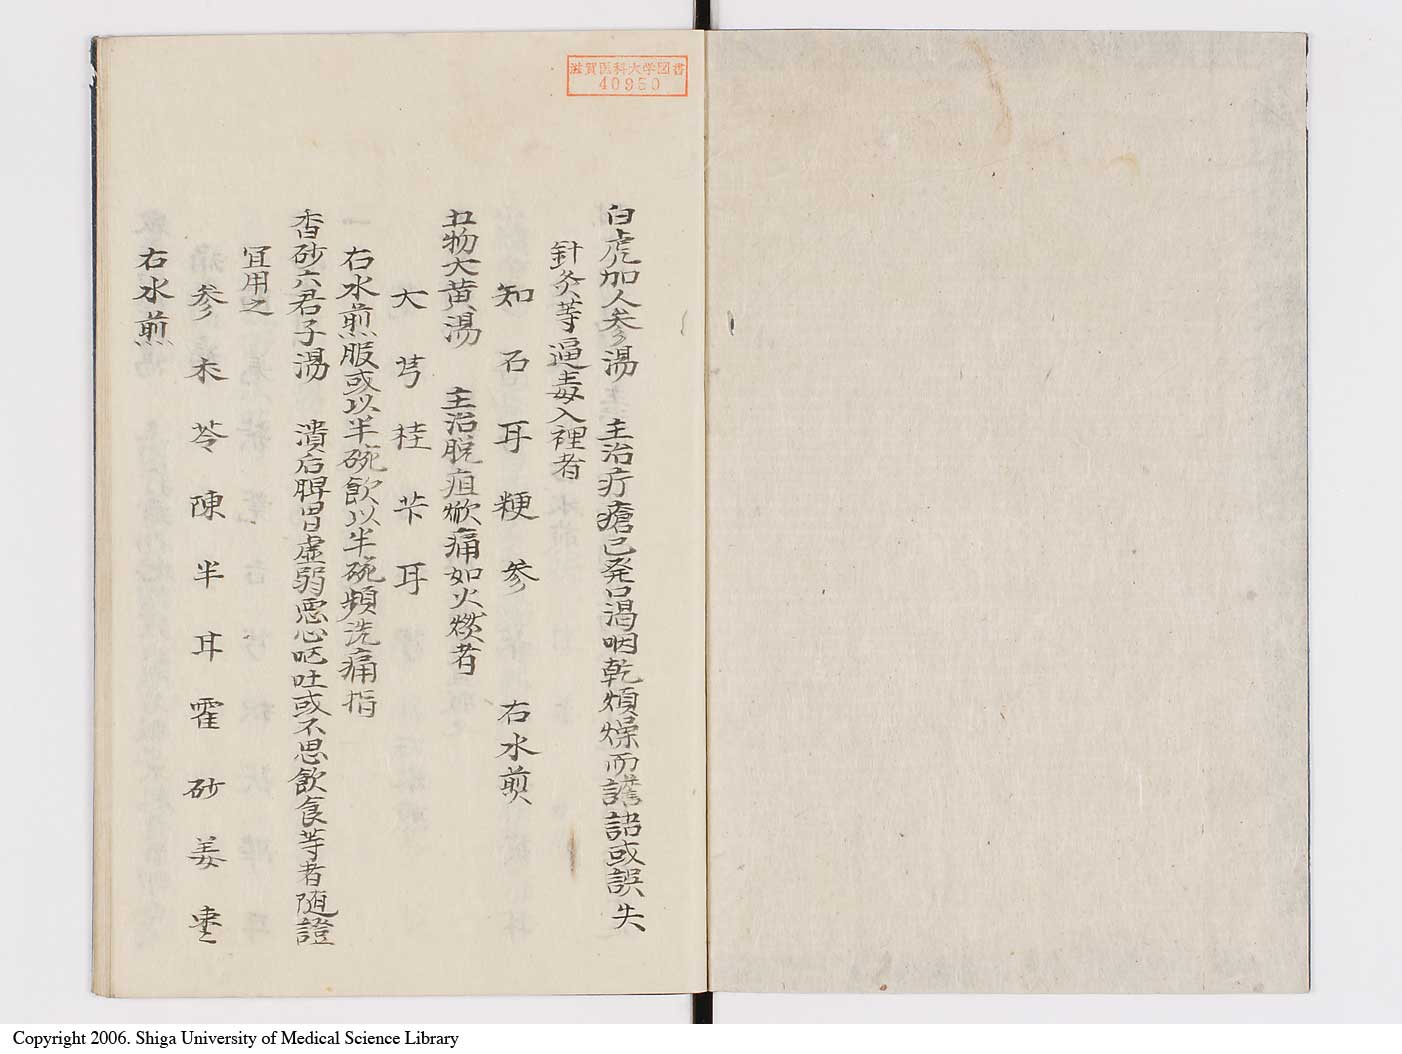 滋賀医科大学図書
40950
白虎加人参湯 主治疔瘡已発口渇咽乾煩燥而譫語或誤失
針灸等逼毒入裡者
知 石 耳 粳 参 右水煎
五物大黄湯 主治脱疽焮痛如火燃者
大 芎 桂 芐 耳
右水煎服或以半碗飲以半碗頻洗痛指
香砂六君子湯 潰后脾胃虚弱悪心呕吐或不思飲食等者随證
宜用之
参 朮 苓 陳 半 耳 霍 砂 姜 枣
右水煎
Copyright 2006. Shiga University of Medical Science Library